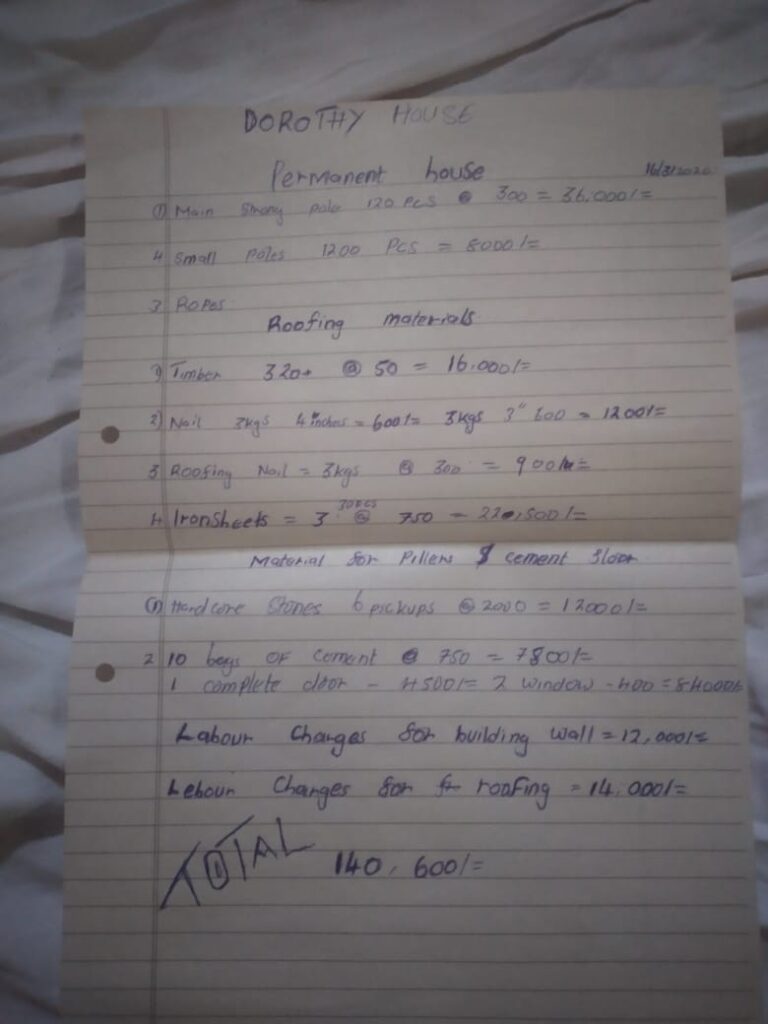 DOROTHY HOUSE
Permanent house 16/3/2020
① Main Strong pole 120 PCS @ 300 = 36.000/=
4 Small Poles 1200 PCS = 8000/=
3 Ropes
Roofing materials
1) Timber 320+ @ 50 = 16.000/=
2) Nail 3kgs 4 inches = 600/= 3kgs 3" 600 = 1200/=
3 Roofing Nail = 3kgs @ 300 = 900/=
4 Iron Sheets = 3 30PCS @ 750 = 220,500/=
Material for Pillers & cement floor
(1) Hardcore Stones 6 pickups @ 2000 = 12000/=
2 10 bags of cement @ 750 = 7800/=
1 complete door - 4500/= 2 window - 400 =
Labour Charges for building wall = 12,000/=
Lebour Charges for roofing = 14,000/=
TOTAL 140,600/=